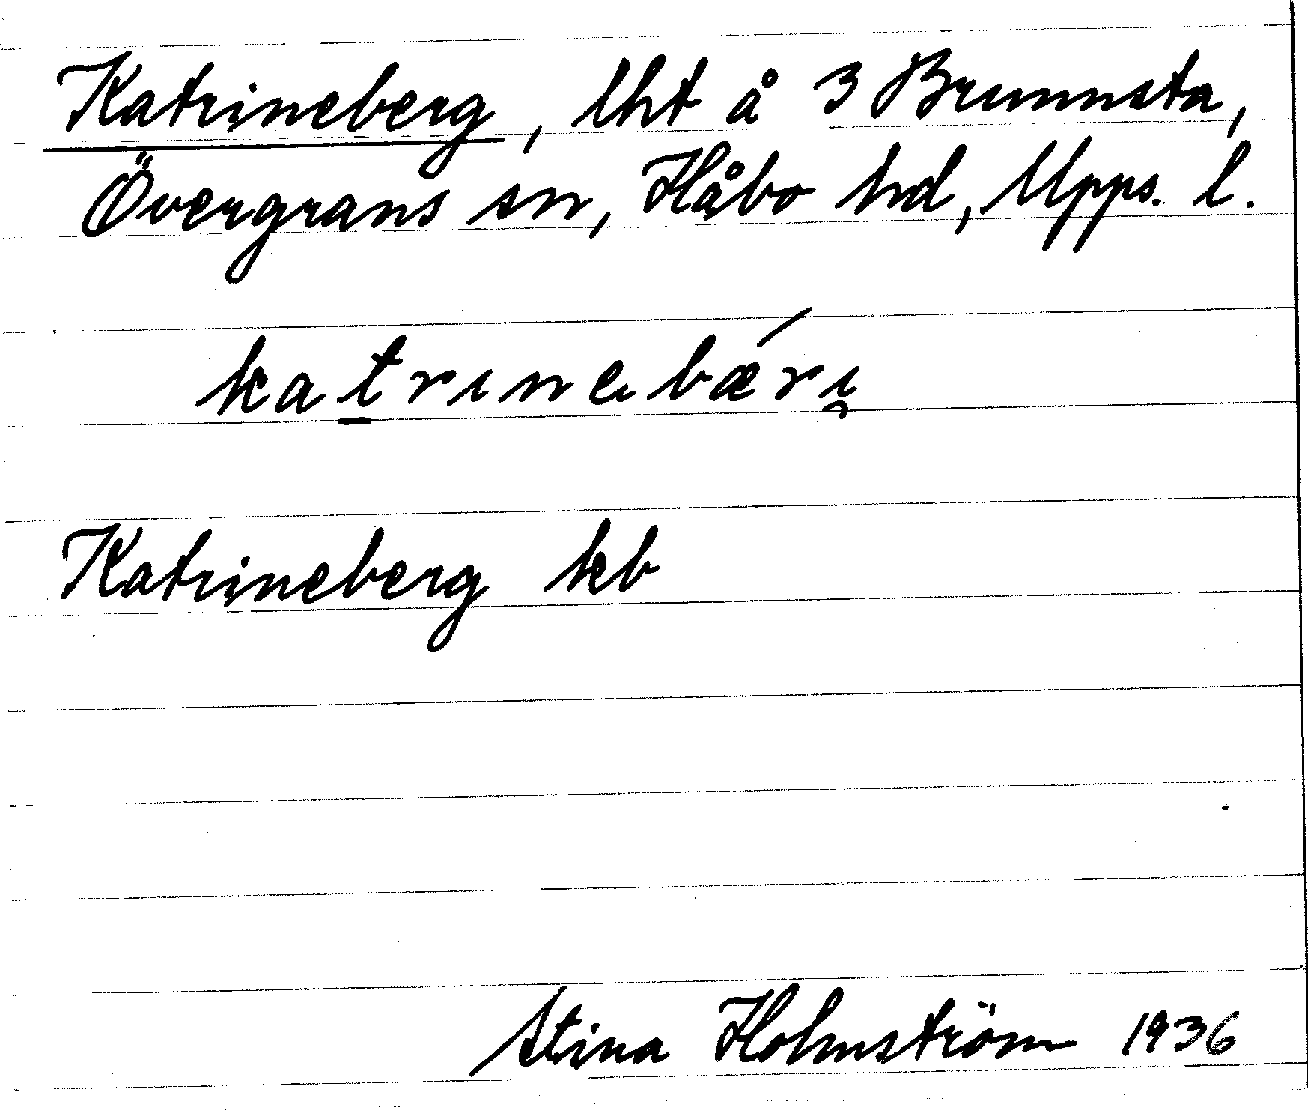 Katrineberg, lht å 3 Brunnsta,
Övergrans sn, Håbo hd, Upps. l.
katrinebǽri̯
Katrineberg kb
Stina Holmström 1936